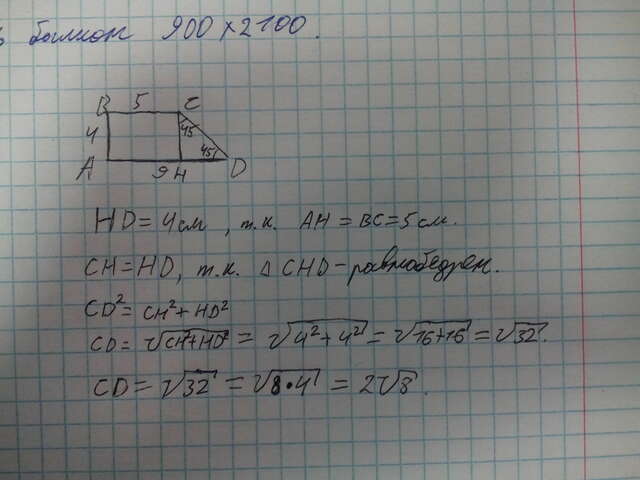 балкон 900 x 2100.
B 5 C
4 45
45
A 9 H D
HD = 4 см, т.к. AH = BC = 5 см.
CH = HD, т.к. △ CHD - равнобедрен.
CD² = CH² + HD²
CD = √CH²+HD² = √4²+4² = √16+16 = √32.
CD = √32 = √8•4 = 2√8.